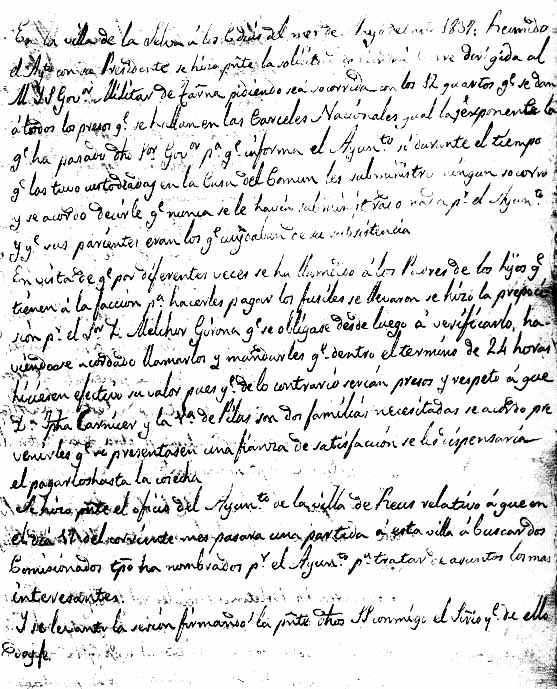 En la villa de la Selva á los días del mes de Mayo del año 1837: Reunido
el Ayto con su Presidente se hizo pnte la solicitud dirigida al
M. I. S Govor Militar de Tarrna pidiendo sea socorrida con los 12 quartos qe se dan
á todos los presos qe se hallan en las Carceles Nacionales igual la qe exponente la
qe ha pasado dho Sor Govor pa qe informa el Ayunto si durante el tiempo
qe las tuvo custodiadas en la Casa del Comun les subministró ningun socorro
y se acordo decirle qe nunca se le havia subministrado nada pr el Ayunto
y qe sus parientes eran los qe cuydaban de su subsistencia
En vista de qe por diferentes veces se ha llamado á los Padres de los hijos qe
tienen á la facción pa hacerles pagar los fusiles se llevaron se hizó la proposi
sión pr el Sor D. Melchor Girona qe se obligase desde luego á verificarlo, ha
viendose acordado llamarlos y mandarles qe dentro el termino de 24 horas
hiciesen efectivo su valor pues qe de lo contrario serian presos y respeto á que
Da Carnicer y la Va de Pilas son dos familias necesitadas se acordo pre
venirles qe si presentasen una fianza de satisfacción se les dispensaria
el pagarlos hasta la cosecha
Se hizo pnte el oficio del Ayunto de la villa de Reus relativo á que en
el dia 17 del corriente mes pasara una partida á esta villa á buscar dos
Comisionados ha nombrados pr el Ayunto pa tratar de asuntos los mas
interesantes.
Y se levantó la sesión firmando la pnte dhos SS conmigo el Srio qe de ello
Doy fe.